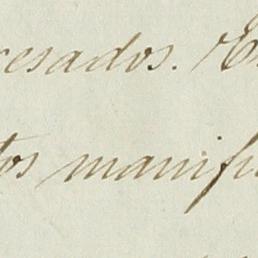 resados. E
tos manifi